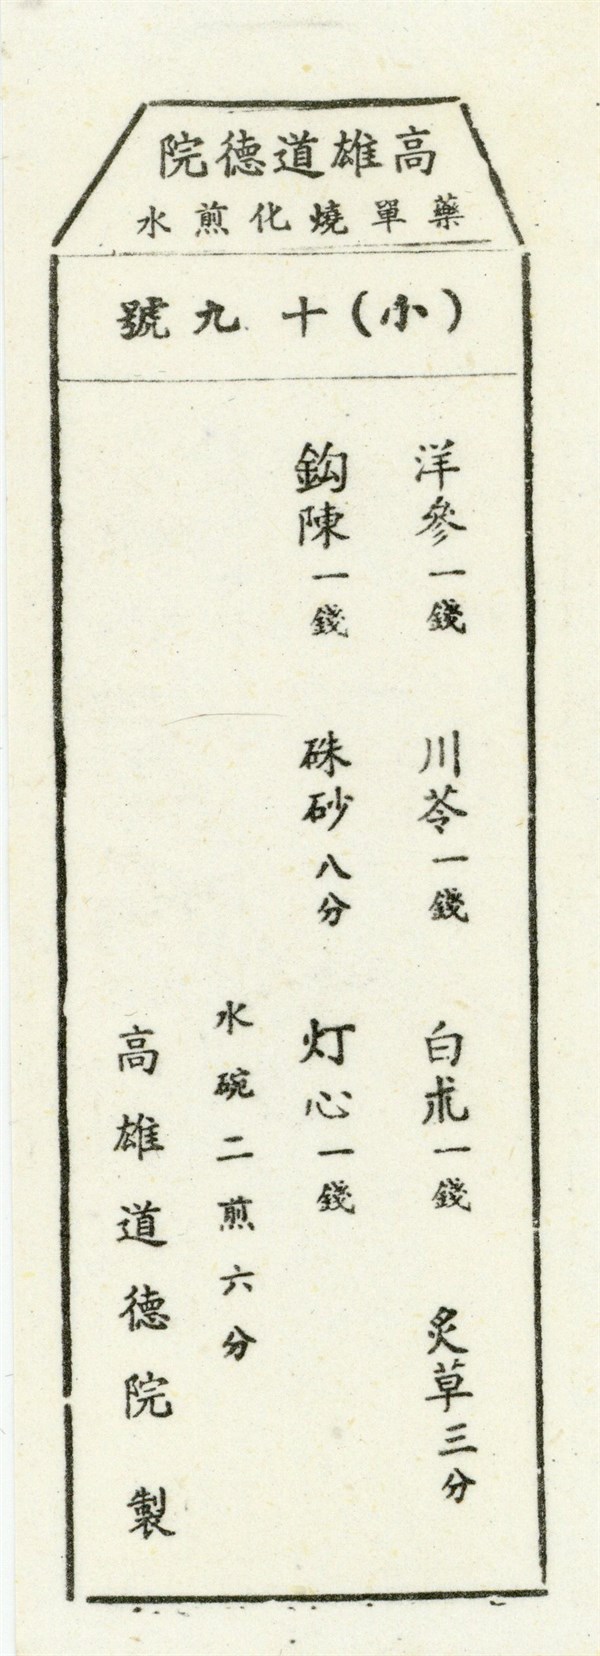 高雄道德院
藥單燒化煎水
（小）十九號
洋參一錢 川苓一錢 白朮一錢 炙草三分
鈎陳一錢 硃砂八分 灯心一錢
水碗二煎六分
高雄道德院 製